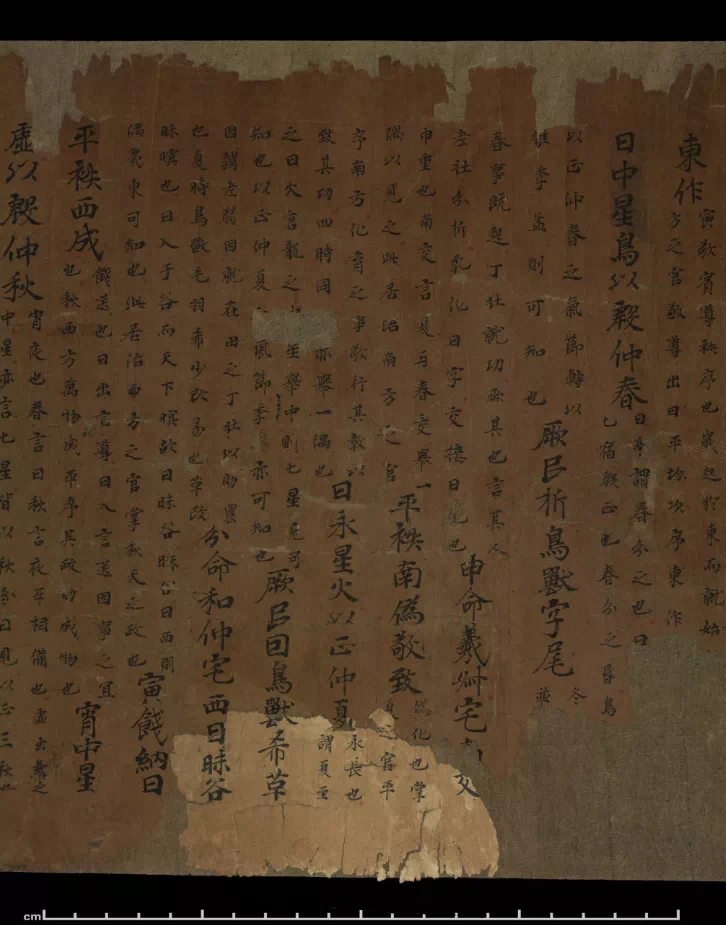 東作
寅敬賓導秩序也歲起於東而就始
方之官敬導出日平均次序東作
日中星鳥以殷仲春
日中謂春分之也日
七宿殷正也春分之昏鳥
以正仲春之氣節轉以
推季孟則可知也
厥民析鳥獸字尾
冬
並
春事既起丁壯就功厥其也言其人
老壯分析乳化曰字交接曰尾也
申命羲叔宅 交
申重也南交言夏与春交舉一
隅以見之此居治南方之官
平秩南偽敬致
偽化也掌
夏之官平
序南方化育之事敬行其教以
致其功四時同 亦舉一隅也
日永星火以正仲夏
永長也
謂夏至
之日火言龍之 星舉中則七星見可
知也以正仲夏 氣節季 亦可知也
厥民因鳥獸希革
因謂老弱因就在田之丁壯以助農
也夏時鳥獸毛羽希少改易也革改
分命和仲宅西曰昧谷
昧暝也日入于谷而天下暝故曰昧谷昧谷曰西則
隅夷東可知也此居治西方之官掌秋天之政也
寅餞納日
餞送也日出言導日入言送因事之宜
平秩西成
也秋西方萬物成平序其政助成物也
宵中星
虛以殷仲秋
宵夜也春言日秋言夜平相備也虛玄武之
中星亦言七星皆以秋分日見以正三秋也